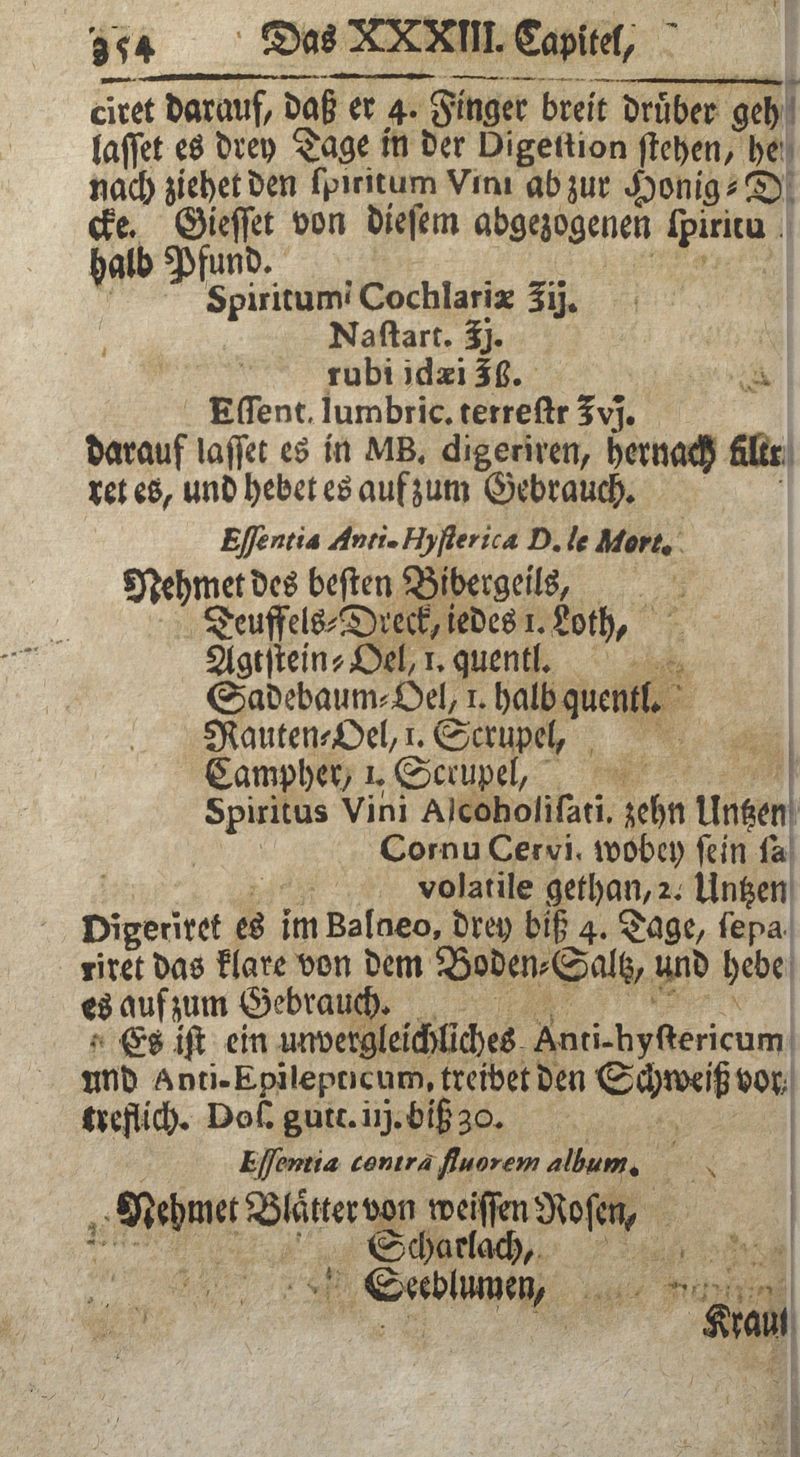 354 Das XXXIII. Capitel,
ciret darauf, daß er 4. Finger breit drüber geh
lasset es drey Tage in der Digestion stehen, her
nach ziehet den spiritum Vini ab zur Honig-Di
cke. Giesset von diesem abgezogenen spiritu
halb Pfund.
Spiritum Cochlariæ ℥ij.
Nastart. ℥j.
rubi idæi ℥ß.
Essent. lumbric. terrestr ℥vj.
darauf lasset es in MB. digeriren, hernach filtr
ret es, und hebet es auf zum Gebrauch.
Essentia Anti-Hysterica D. le Mort.
Nehmet des besten Bibergeils,
Teuffels-Dreck, iedes 1. Loth,
Agtstein-Oel, 1. quentl.
Sadebaum-Oel, 1. halb quentl.
Rauten-Oel, 1. Scrupel,
Campher, 1. Scrupel,
Spiritus Vini Alcoholisati. zehn Untzen
Cornu Cervi. wobey sein sa
volatile gethan, 2. Untzen
Digeriret es im Balneo, drey biß 4. Tage, sepa
riret das klare von dem Boden-Saltz, und hebe
es auf zum Gebrauch.
Es ist ein unvergleichliches Anti-hystericum
und Anti-Epilepticum, treibet den Schweiß vor
treflich. Dos. gutt. iij. biß 30.
Essentia contrà fluorem album.
Nehmet Blätter von weissen Rosen,
Scharlach,
Seeblumen,
Kraut